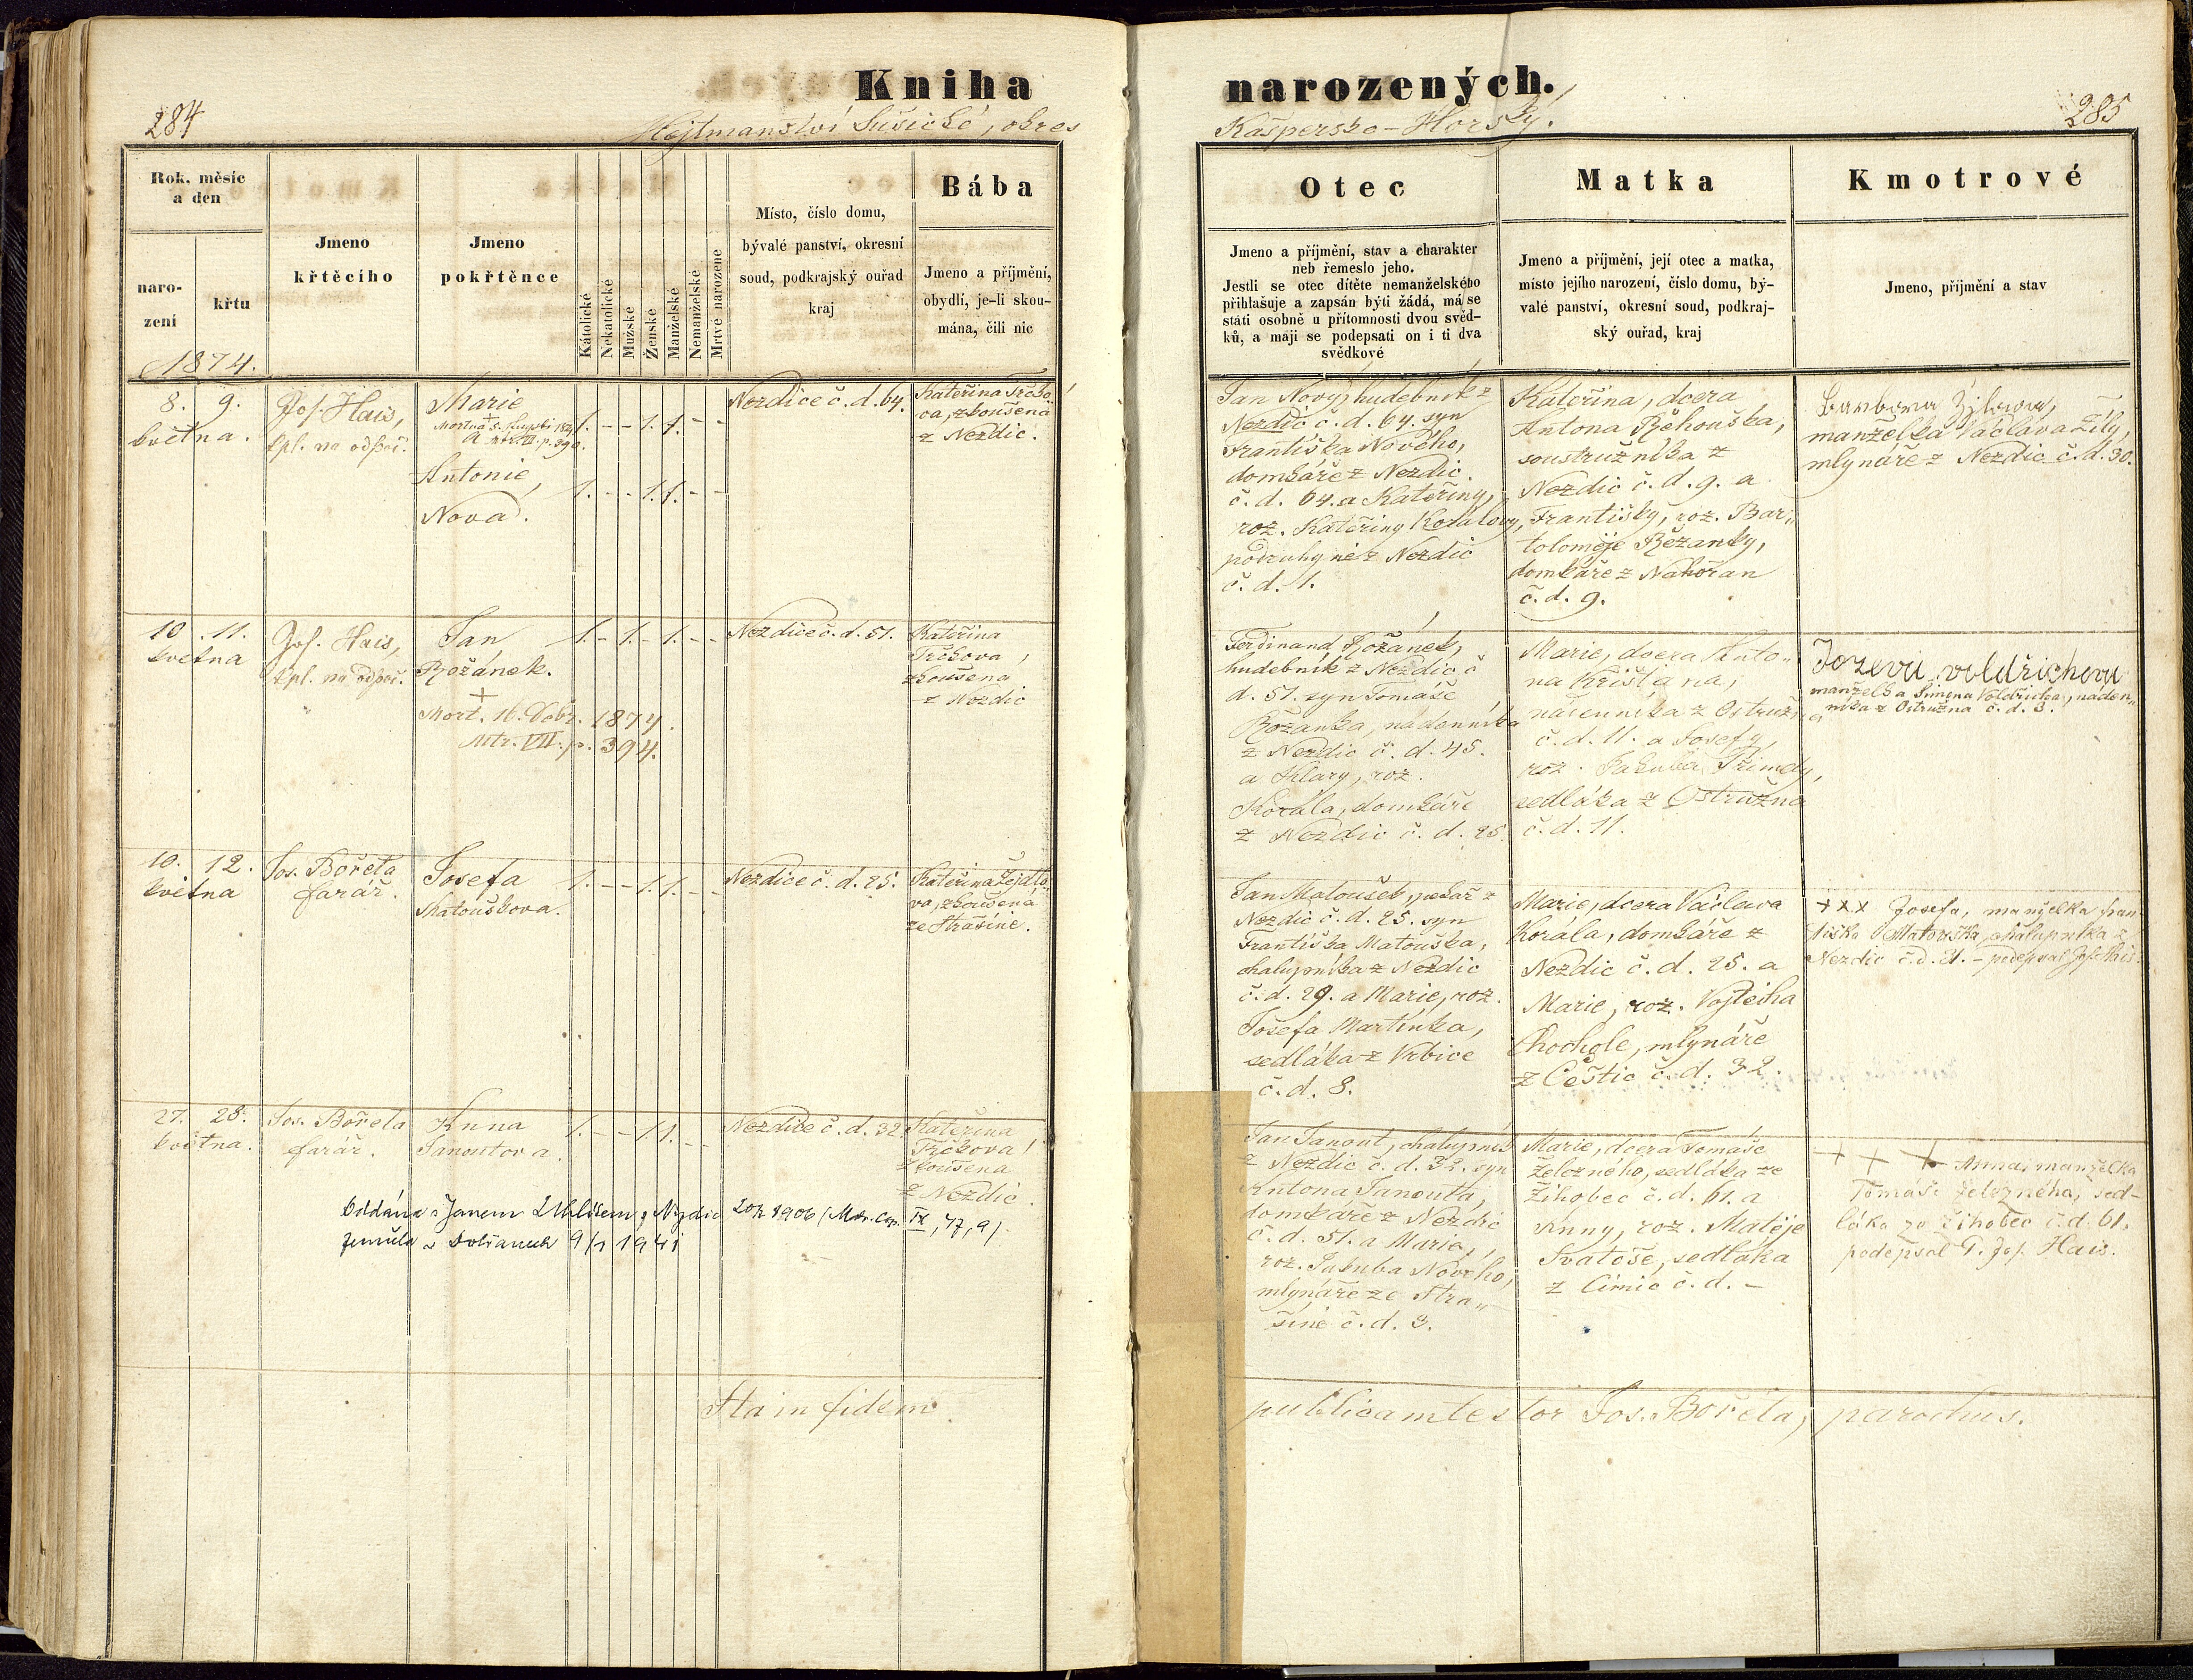 Kniha narozených.
284
Hejtmanství Sušické, okres
Kašpersko-Horský.
285
Rok, měsíc
a den
naro-
zení
křtu
1874.
Jmeno
křtěcího
Jmeno
pokřtěnce
Kátolické
Nekatolické
Mužské
Ženské
Manželské
Nemanželské
Mrtvé narozené
Místo, číslo domu,
bývalé panství, okresní
soud, podkrajský ouřad
kraj
Bába
Jmeno a příjmění,
obydlí, je-li skou-
mána, čili nic
Otec
Jmeno a příjmění, stav a charakter
neb řemeslo jeho.
Jestli se otec dítěte nemanželského
přihlašuje a zapsán býti žádá, má se
státi osobně u přítomnosti dvou svěd-
ků, a mají se podepsati on i ti dva
svědkové
Matka
Jmeno a příjmění, její otec a matka,
místo jejího narození, číslo domu, bý-
valé panství, okresní soud, podkraj-
ský ouřad, kraj
Kmotrové
Jmeno, příjmění a stav
8. 9.
května.
Jos. Hais,
kpl. na odpoč.
Marie
+
Antonie,
Nová.
1. - - 1. 1. - -
1. - - 1. 1. - -
Nezdice č. d. 64.
Kateřina Trčko
va, zkoušená
z Nezdic.
Jan Nový, hudebník z
Nezdic č. d. 64. syn
Františka Nového,
domkáře z Nezdic
č. d. 64. a Kateřiny,
roz. Kateřiny Korálovy,
podruhyně z Nezdic
č. d. 1.
Kateřina, dcera
Antona Řehouška,
soustružníka z
Nezdic č. d. 9. a
Františky, roz. Bar„
toloměje Řežanky,
domkáře z Nahořan
č. d. 9.
Barbora Žílova,
manželka Václava Žíly,
mlynáře z Nezdic č. d. 30.
10. 11.
května
Jos. Hais,
kpl. na odpoč.
Jan
Rožánek.
+
Mort. 16. 1874.
Mtr. VII. p. 394.
1. - 1. - 1. - -
Nezdice č. d. 51.
Kateřina
Trčkova,
zkoušena
z Nezdic
Ferdinand Rožánek,
hudebník z Nezdic č
d. 51. syn Tomáše
Rožanka, nádenníka
z Nezdic č. d. 45.
a Klary, roz.
Korála, domkáře
z Nezdic č. d. 25.
Marie, dcera Anto„
na Kristiana,
nádenníka z Ostružna
č. d. 11. a Josefy,
roz. Jakuba Přimdy,
sedláka z Ostružna
č. d. 11.
Jozevа voldřichova
manželka Šimona Voldřicha, náden„
níka z Ostružna č. d. 3.
10. 12.
května
Jos. Bořeta
farář.
Josefa
Matouškova.
1. - - 1. 1. - -
Nezdice č. d. 25.
Kateřina Žejdlo
va, zkoušená
ze Strašíně.
Jan Matoušek, pekař z
Nezdic č. d. 25. syn
Františka Matouška,
chalupníka z Nezdic
č. d. 29. a Marie, roz.
Josefa Martínka,
sedláka z Vrbice
č. d. 8.
Marie, dcera Václava
Korála, domkáře z
Nezdic č. d. 25. a
Marie, roz. Vojtěcha
Chochole, mlynáře
z Čestic č. d. 32.
+xx Josefa, manželka Fran
tiška Matouška, chalupníka z
Nezdic č. d. 21. - podepsal Jos. Hais.
27. 28.
května.
Jos. Bořeta
farář.
Anna
Janoutova
1. - - 1. 1. - -
Nezdice č. d. 32
Kateřina
Trčkova,
zkoušena
z Nezdic.
Oddána s Janem z Nezdic 1906 (Mtr. Cop. IX, 77, 9)
Zemřela v 1941
Jan Janout, chalupník
z Nezdic č. d. 32. syn
Antona Janouta,
domkáře z Nezdic
č. d. 51. a Marie,
roz. Jakuba Nového,
mlynáře ze Stra„
šíně č. d. 3.
Marie, dcera Tomaše
Železného, sedláka ze
Žihobec č. d. 61. a
Anny, roz. Matěje
Svatoše, sedláka
z Čimic č. d. -
+ + + Anna, manželka
Tomáše Železného, sed-
láka ze Žihobec č. d. 61.
podepsal P. Jos. Hais.
Ita in fidem publicam testor Jos. Bořeta, parochus.